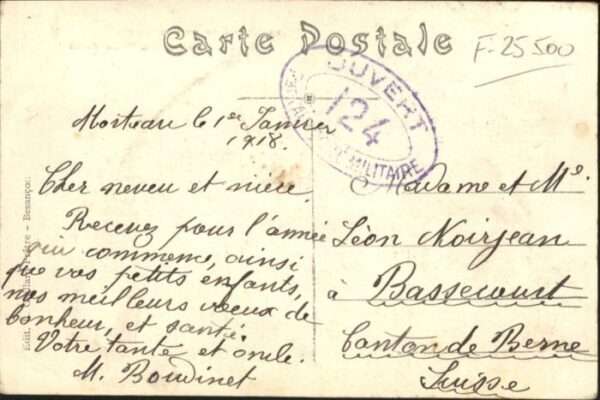 Carte Postale
F-25500
OUVERT
PAR AUTORITÉ MILITAIRE
124
Morteau le 1er Janvier
1918.
Cher neveu et nièce.
Recevez pour l'année
qui commence, ainsi
que vos petits enfants,
nos meilleurs vœux de
bonheur, et santé.
Votre tante et oncle.
M. Boudinet
Madame et Mr.
Léon Noirjean
à Bassecourt
Canton de Berne
Suisse
Besançon.